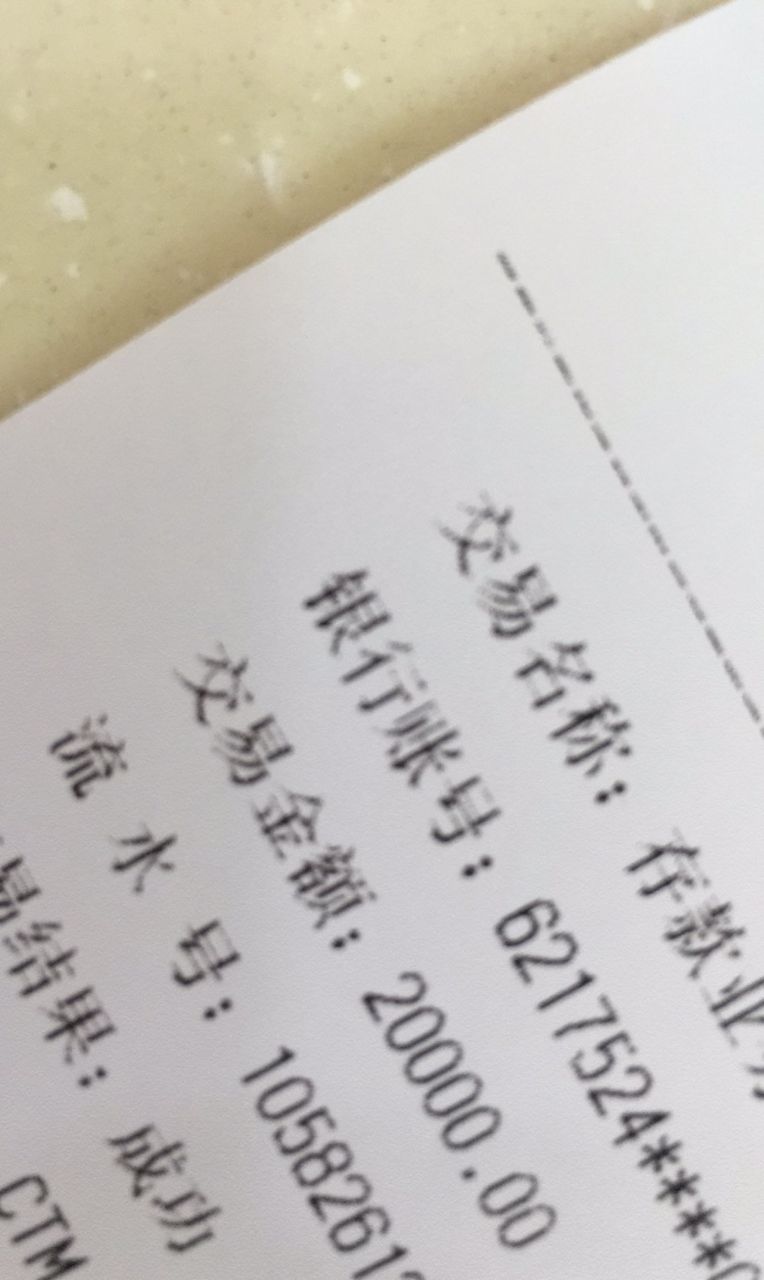 交易名称：存款业务
银行账号：6217524****
交易金额：20000.00
流水号：10582612
易结果：成功
CTM